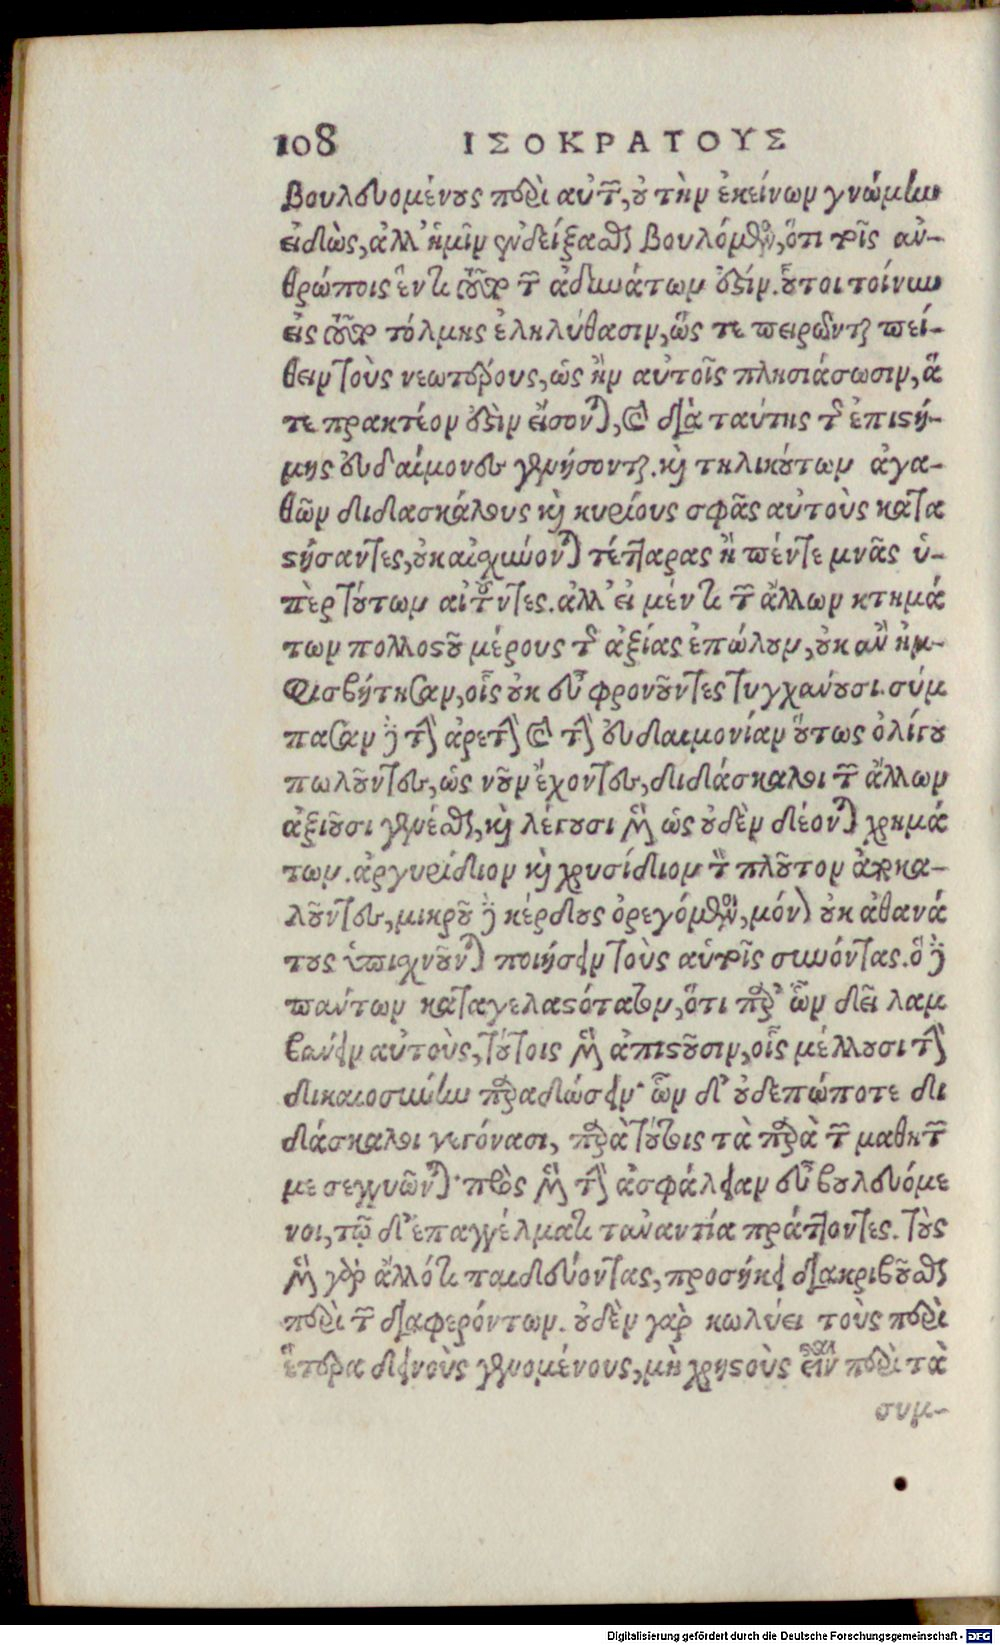 108 ΙΣΟΚΡΑΤΟΥΣ
βουλευομένους περὶ αὐτῶν, οὐ τὴν ἐκείνων γνώμην
εἰδὼς, ἀλλ' ἡμῖν ἐνδείξαθαι βουλόμενος, ὅτι τοῖς ἀν-
θρώποις ἕν τι τοῦτο τῶν ἀδυνάτων ὀξίν. οὗτοι τοίνυν
εἰς τοῦτο τόλμης ἐληλύθασιν, ὥς τε πειρῶνται πεί-
θειν τοὺς νεωτέρους, ὡς ἢν αὐτοῖς πλησιάσωσιν, ἅ
τε πρακτέον ὀξὶν εἴσονται, καὶ διὰ ταύτης τῆς ἐπιστή-
μης εὐδαίμονες γενήσονται. καὶ τηλικούτων ἀγα-
θῶν διδασκάλους καὶ κυρίους σφᾶς αὐτοὺς κατα
στήσαντες, οὐκ αἰσχύνονται τέτταρας ἢ πέντε μνᾶς ὑ-
πὲρ τούτων αἰτοῦντες. ἀλλ' εἰ μέν τι τῶν ἄλλων κτημά
των πολλοστοῦ μέρους τῆς ἀξίας ἐπώλουν, οὐκ ἂν ἠμ-
φισβήτησαν, οἷς οὐκ εὖ φρονοῦντες τυγχάνουσι. σύμ
πασαν δὲ τὴν ἀρετὴν καὶ τὴν εὐδαιμονίαν οὕτως ὀλίγου
πωλοῦντες, ὡς νοῦν ἔχοντες, διδάσκαλοι τῶν ἄλλων
ἀξιοῦσι γενέσθαι, καὶ λέγουσι μὲν ὡς οὐδὲν δέονται χρημά
των. ἀργυρίδιον καὶ χρυσίδιον τὸν πλοῦτον ἀποκα-
λοῦντες, μικροῦ δὲ κέρδους ὀρεγόμενοι, μόνον οὐκ ἀθανά
τους ὑπισχνοῦνται ποιήσειν τοὺς αὑτοῖς συνόντας. ὃ δὲ
πάντων καταγελαστότατον, ὅτι παρ' ὧν δεῖ λαμ
βάνειν αὐτοὺς, τούτοις μὲν ἀπιστοῦσιν, οἷς μέλλουσι τὴν
δικαιοσύνην παραδώσειν· ὧν δ' οὐδεπώποτε δι
δάσκαλοι γεγόνασι, παρὰ τούτοις τὰ παρὰ τῶν μαθητῶν
μεσεγγυῶνται· πρὸς μὲν τὴν ἀσφάλειαν εὖ βουλευόμε
νοι, τῷ δ' ἐπαγγέλματι τἀναντία πράττοντες. τοὺς
μὲν γὰρ ἄλλό τι παιδεύοντας, προσήκει διακριβοῦσθαι
περὶ τῶν διαφερόντων. οὐδὲν γὰρ κωλύει τοὺς περὶ
ἕτερα δεινοὺς γενομένους, μὴ χρηστοὺς εἶναι περὶ τὰ
συμ-
Digitalisierung gefördert durch die Deutsche Forschungsgemeinschaft - DFG